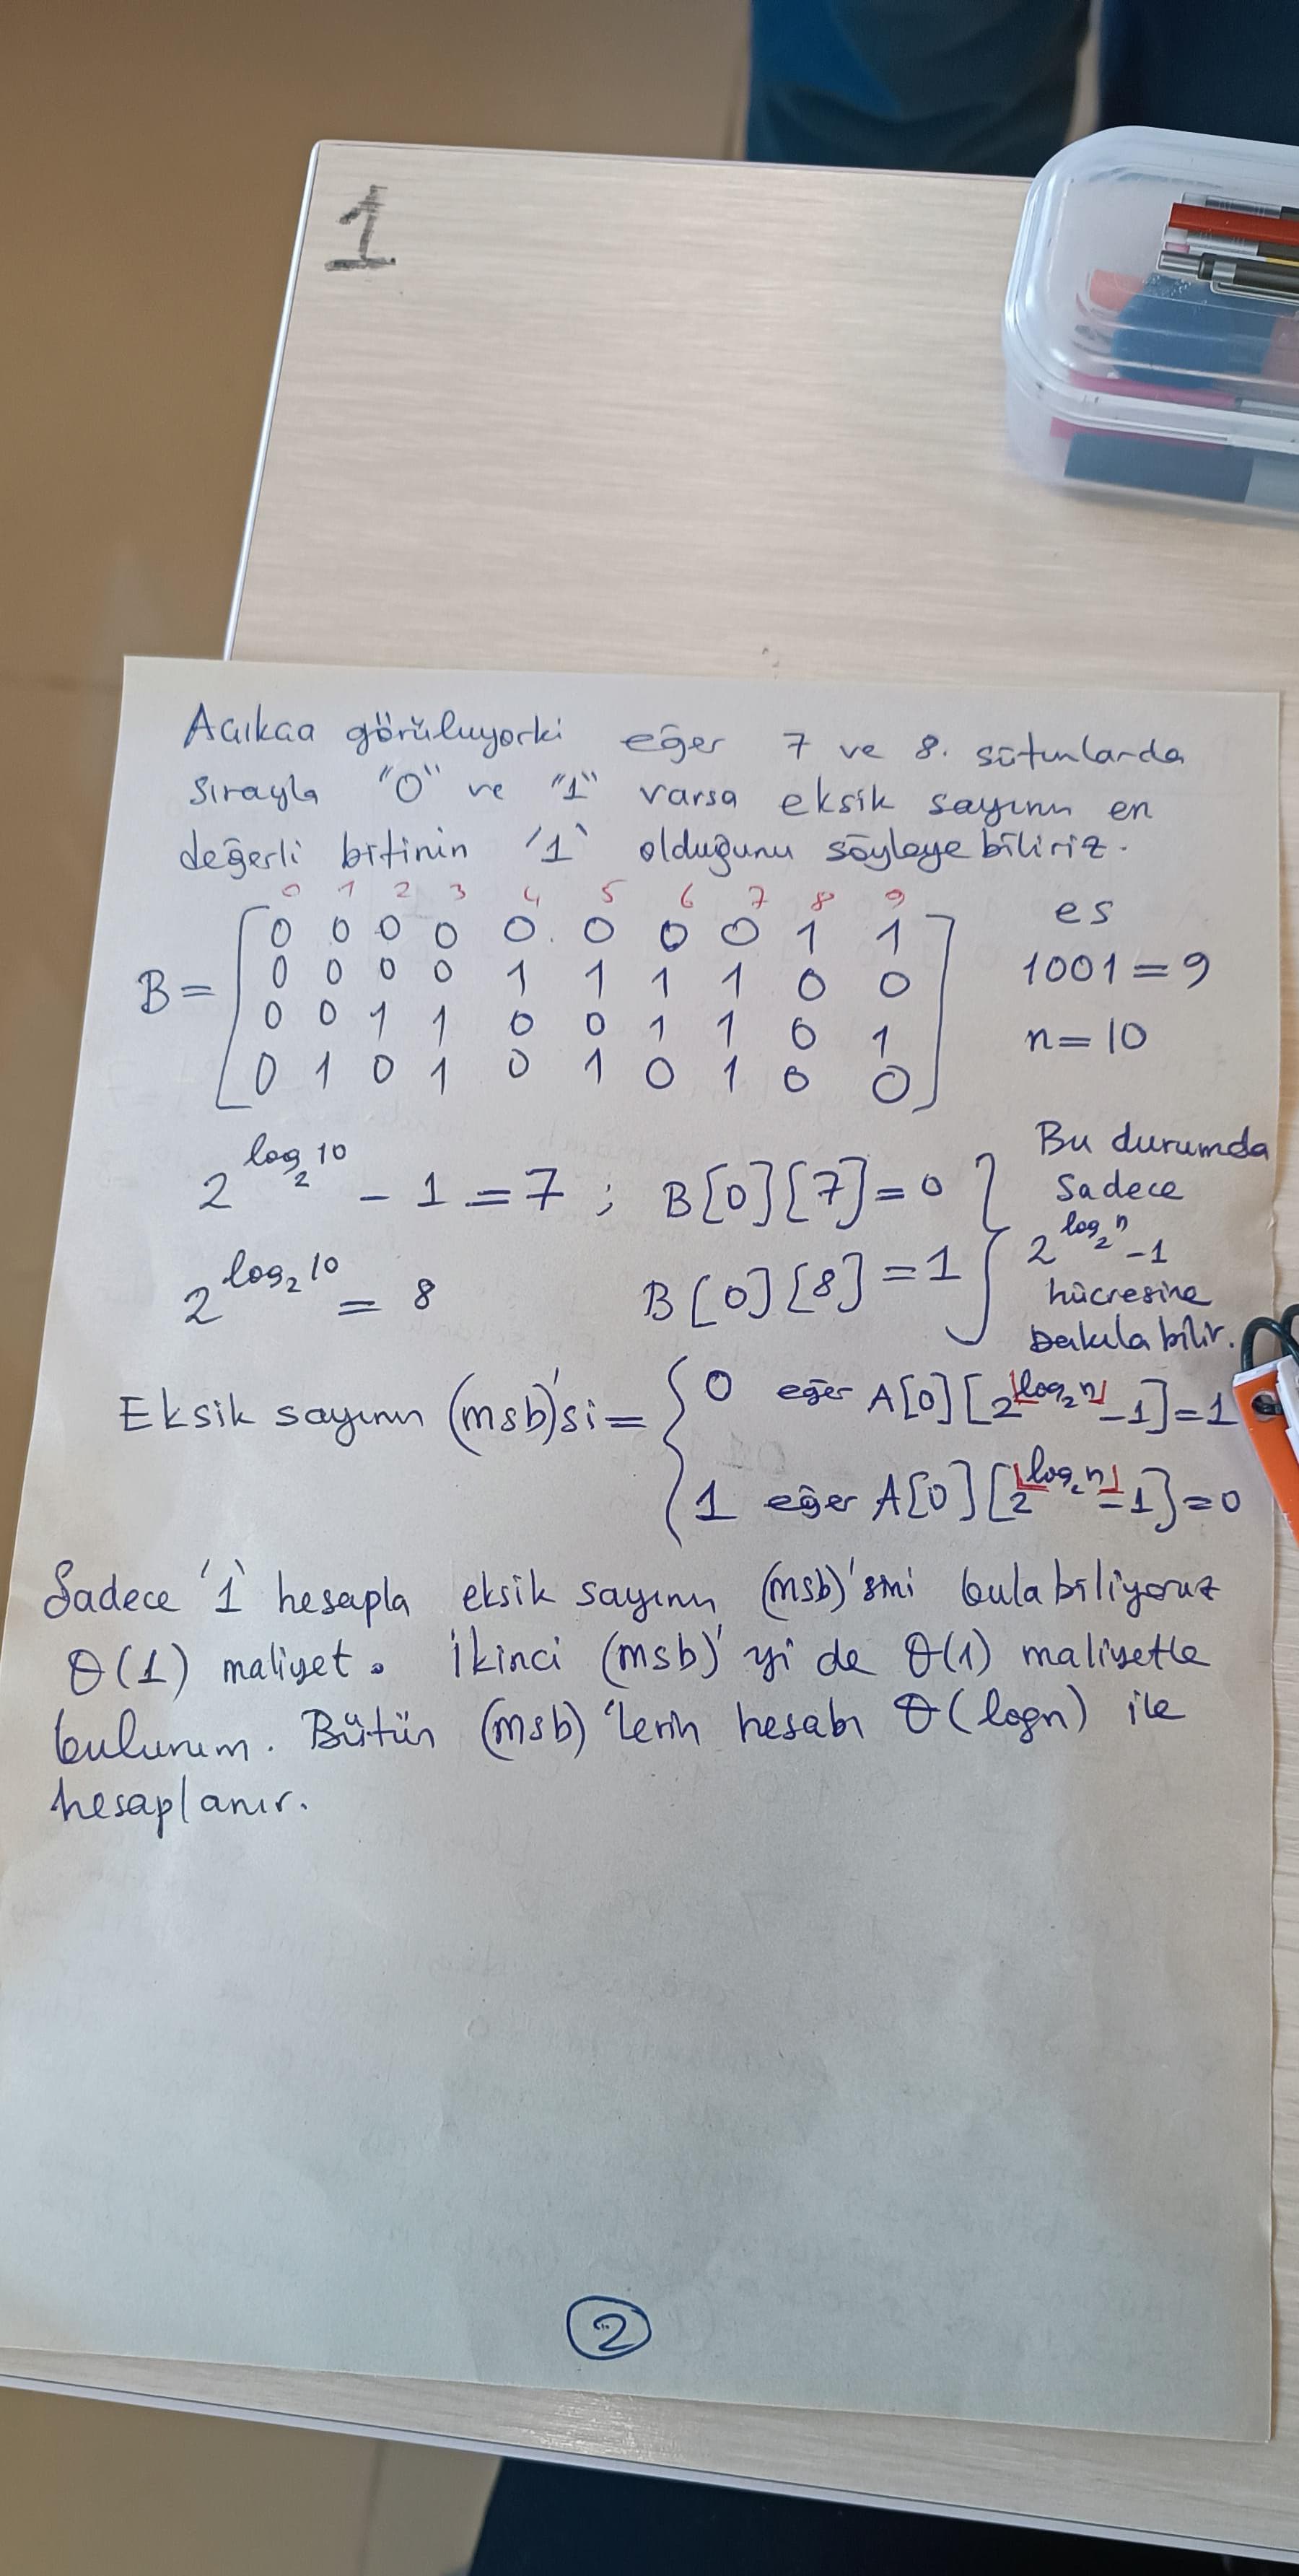 1
Açıkca görülüyorki eğer 7 ve 8. sütunlarda
sırayla "0" ve "1" varsa eksik sayının en
değerli bitinin '1' olduğunu söyleyebiliriz.
0 1 2 3 4 5 6 7 8 9
B = [0 0 0 0 0 0 0 0 1 1
0 0 0 0 1 1 1 1 0 0
0 0 1 1 0 0 1 1 0 1
0 1 0 1 0 1 0 1 0 0]
es
1001 = 9
n = 10
2^log₂10 - 1 = 7 ; B[0][7] = 0
2^log₂10 = 8 B[0][8] = 1
Bu durumda
sadece
2^log₂n - 1
hücresine
bakılabilir.
Eksik sayının (msb)'si = { 0 eğer A[0][2^⌊log₂n⌋ - 1] = 1
1 eğer A[0][2^⌊log₂n⌋ - 1] = 0
Sadece '1' hesapla eksik sayının (msb)'sini bulabiliyoruz
θ(1) maliyet. İkinci (msb)'yi de θ(1) maliyetle
bulurum. Bütün (msb)'lerin hesabı θ(logn) ile
hesaplanır.
2